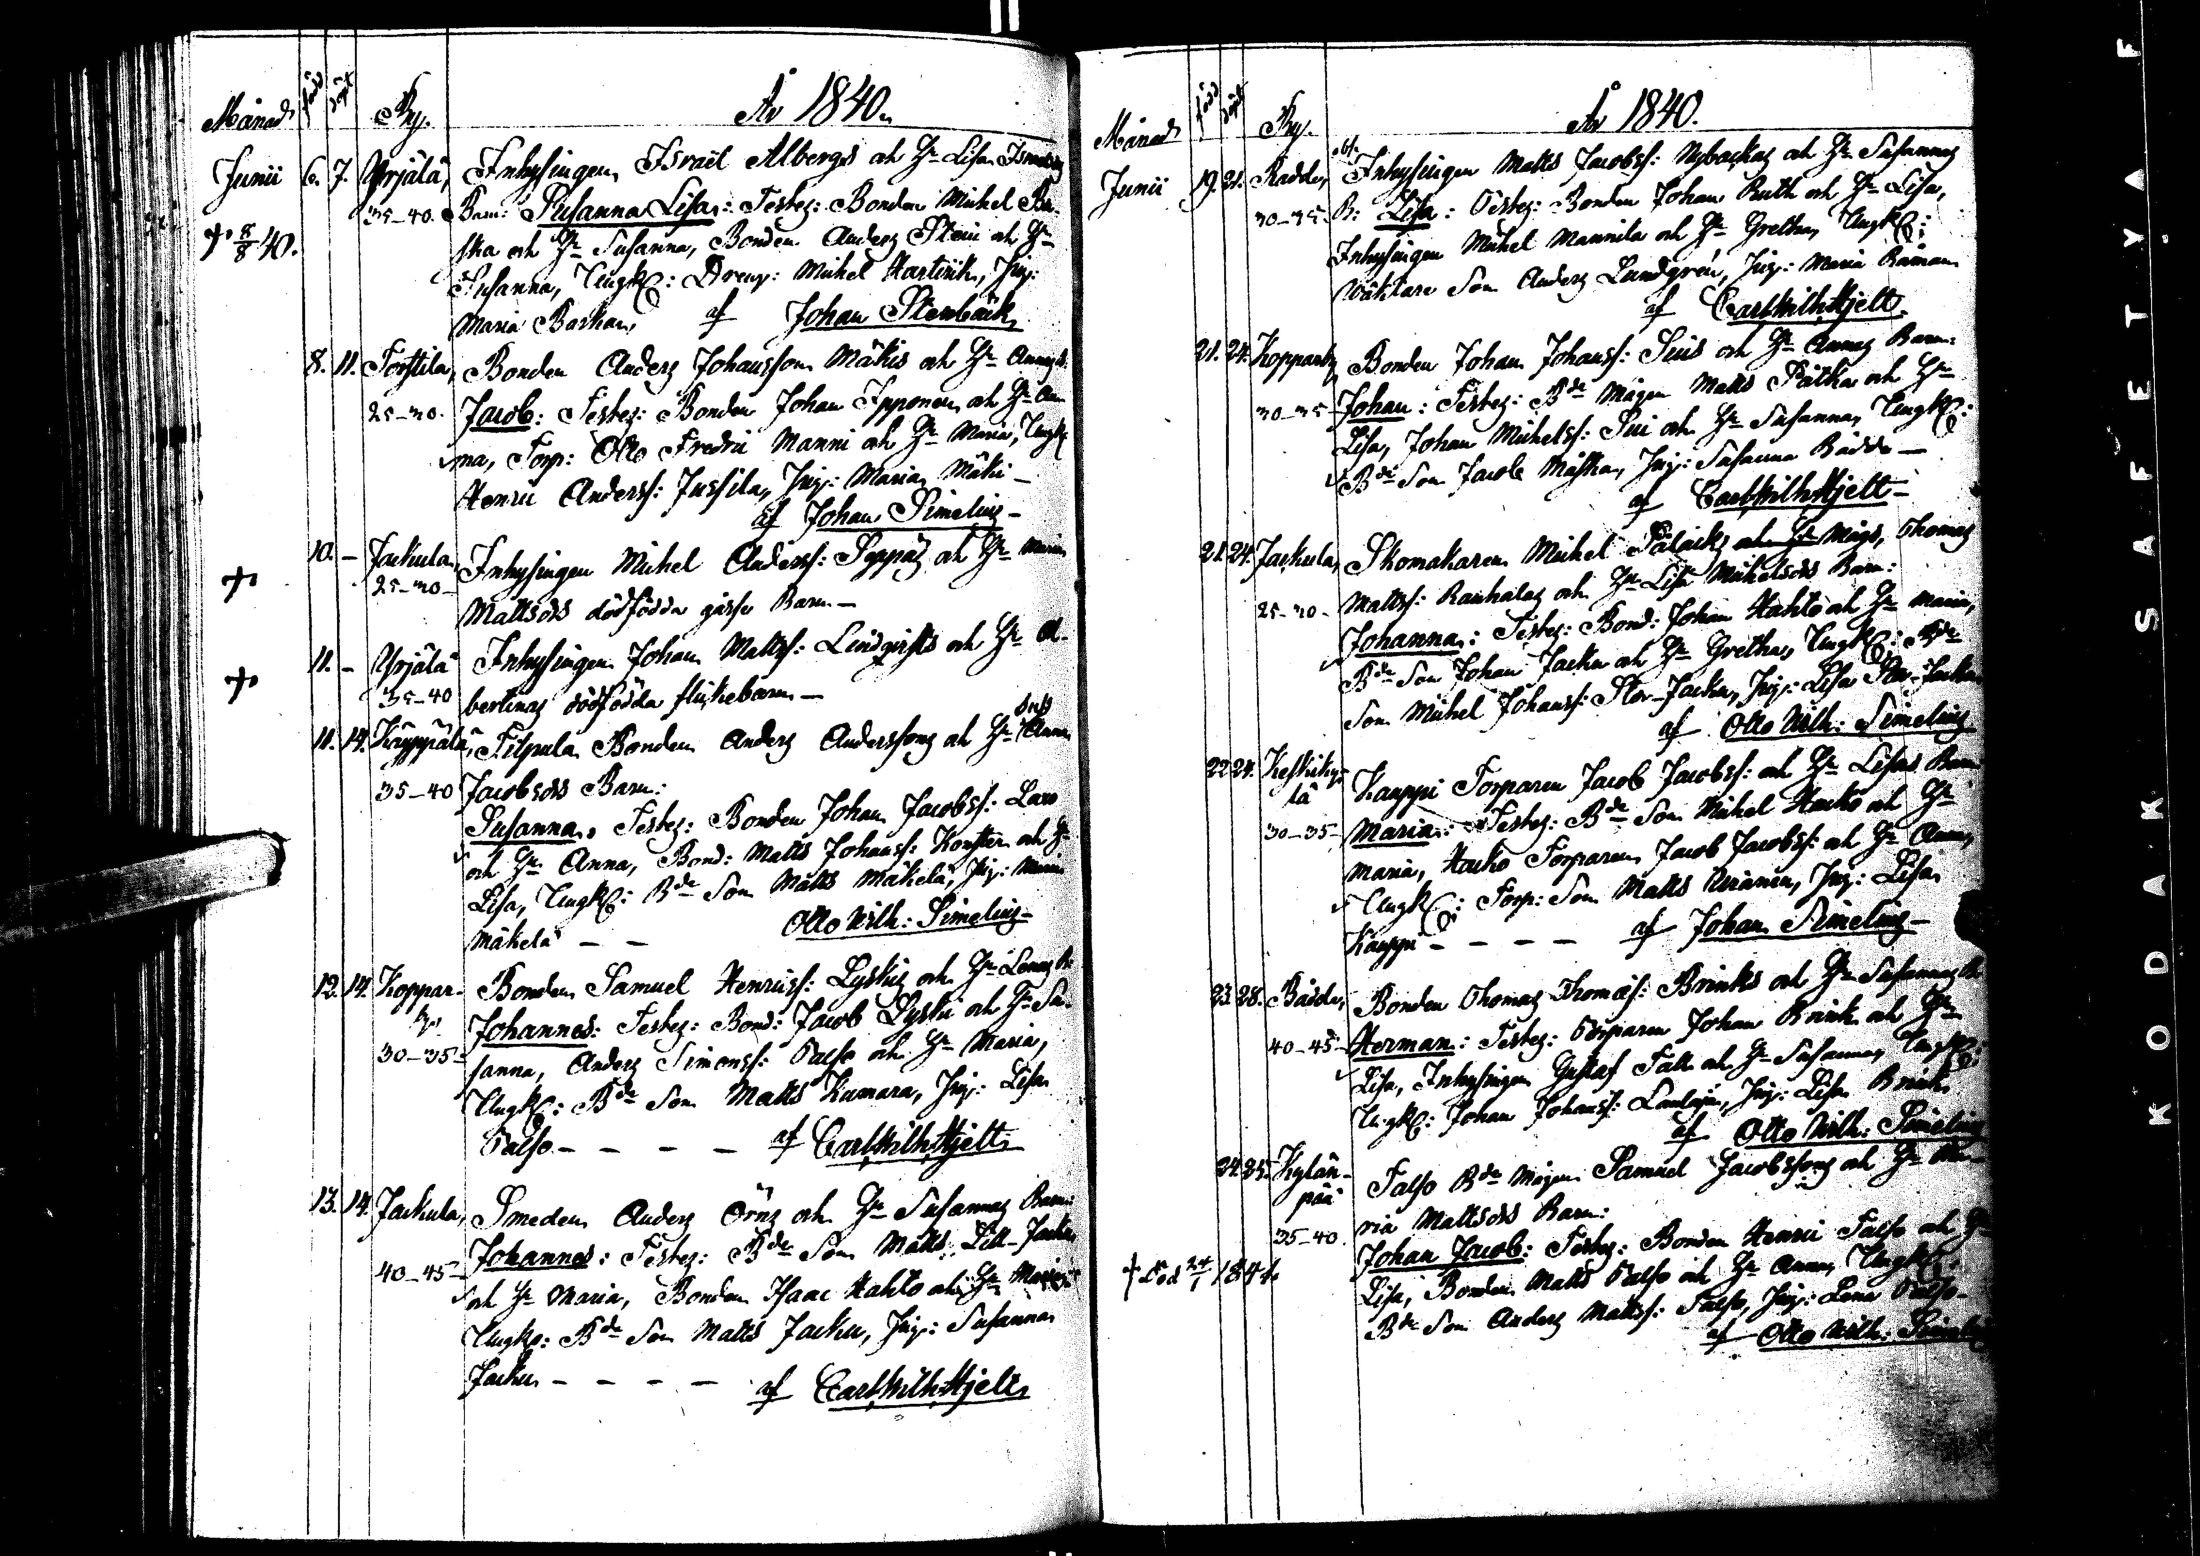 Månad född döpt By. År 1840.
Junii 6. 7. Yrjälä, Inhysingen Israël Albergs och H:u Lisa
35-40. Barn: Susanna Lisa: Testes: Bonden Michel
† 8/8 40. ska och H:u Susanna, Bonden Anders Steni och H:u
Susanna, Ungk: Dreng: Michel Hartvik, Pig:
Maria Barkar, af Johan Stenbäck
8. 11. Torttila, Bonden Anders Johansson Mäkis och H:u Annas B:
25-30. Jacob: Testes: Bonden Johan Ipponen och H:u An-
na, Torp: Otto Fredric Manni och H:u Maria, Ungk
Henric Anderss: Jussila, Pig: Maria Mäki -
af Johan Simelius -
† 10. - Jackula, Inhysingen Michel Anderss: Seppäs och H:u Maria
25-30 - Mattsdrs dödfödda gosse Barn -
† 11. - Yrjälä Inhysingen Johan Matss: Lindqvists och H:u Al-
35-40 bertinas dödfödda flickebarn -
11. 14. Käyppälä, Filpula Bonden Anders Anderssons och H:u Anna
35-40 Jacobsdrs Barn:
Susanna. Testes: Bonden Johan Jacobss: Laro
och H:u Anna, Bond: Matts Johanss: Konsten och H:u
Lisa, Ungk: Bde Son Matts Mäkelä, Pig: Maria
Mäkelä - - Otto Wilh: Simelius -
12. 14. Koppar- Bonden Samuel Henricss: Lyskis och H:u Lenas B:
by, Johannes: Testes: Bond: Jacob Lyski och H:u Su-
30-35 - sanna, Anders Simonss: Palso och H:u Maria,
Ungk: Bde Son Matts Kamara, Pig: Lisa
Palso - - - - af Carl Wilh Hjelt
13. 14. Jackula, Smeden Anders Örns och H:u Susannas Barn:
40-45 - Johannes: Testes: Bde Son Matts Lill-Jacku
och H:u Maria, Bonden Isaac Hahto och H:u Maria
Ungk: Bde Son Matts Jacku, Pig: Susanna
Jacku - - - - af Carl Wilh Hjelt
Månad född döpt By. År 1840.
Junii 19. 21. Radde, Inhysingen Matts Jacobss: Nybackas och H:u Susannas
30-35 - B: Lisa: Testes: Bonden Johan Ruth och H:u Lisa,
Inhysingen Michel Mannila och H:u Gretha, Ungk:
Wäktare Son Anders Lundgrén, Pig: Maria
af Carl Wilh Hjelt.
21. 24. Kopparby, Bonden Johan Johanss: Suis och H:u Annas Barn:
30-35 - Johan: Testes: Bde Mågen Matts Pätka och H:u
Lisa, Johan Michelss: Sui och H:u Susanna, Ungk:
Bde Son Jacob Mäska, Pig: Susanna Rädde -
af Carl Wilh Hjelt -
21. 24. Jackula, Skomakaren Michel och H:u Mågs, Thomas
25-30 - Mattss: Rauhalas och H:u Lisa Michelsdrs Barn:
Johanna: Testes: Bond: Johan Hahto och H:u Maria,
Bde Son Johan Jacku och H:u Gretha, Ungk: Bde
Son Michel Johanss: Stor-Jacku, Pig: Lisa Stor-Jacku
af Otto Wilh: Simelius
22. 24. Keskiky- Kauppi Torparen Jacob Jacobss: och H:u Lisas Barn
lä
30-35 - Maria: Testes: Bde Son Michel Hacko och H:u
Maria, Hacko Torparen Jacob Jacobss: och H:u Anna,
Ungk: Torp: Son Matts Kiviniemi, Pig: Lisa
Kauppi - - - - af Johan Simelius -
23. 28. Rädde, Bonden Thomas Thomæs: Brinks och H:u Susannas B:
40-45 - Herman: Testes: Torparen Johan Brink och H:u
Lisa, Inhysingen Gustaf Fält och H:u Susanna, Ungk:
Ungk: Johan Johanss: Pig: Lisa Brink
af Otto Wilh: Simelius
24. 25. Kylän- Talso Bde Mågen Samuel Jacobssons och H:u Ma-
pää ria Mattsdrs Barn:
35-40. Johan Jacob: Testes: Bonden Henric Talso och H:u
† död 24/1 1841. Lisa, Bonden Matts Palso och H:u Anna, Ungk:
Bde Son Anders Mattss: Talso, Pig: Lena Palso -
af Otto Wilh: Simelius
KODAK SAFETY A F